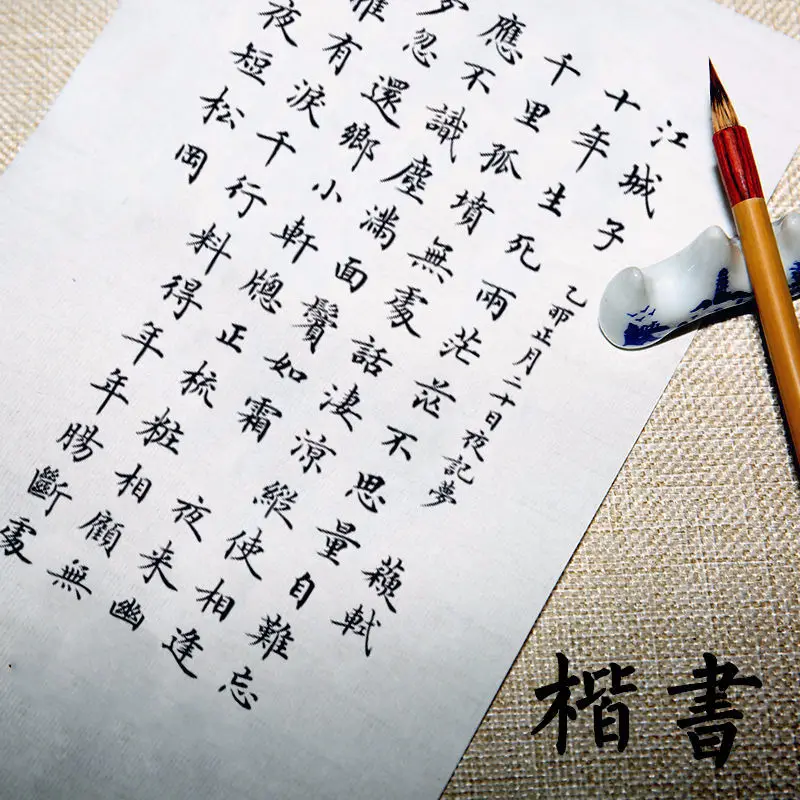 江城子 乙卯正月二十日夜記夢 蘓軾
十年生死兩茫茫不思量自難忘
千里孤墳無處話淒涼縱使相逢
應不識塵滿面鬢如霜夜来幽
忽還鄉小軒牕正梳粧相顧無
惟有淚千行料得年年腸斷處
夜短松岡
楷書